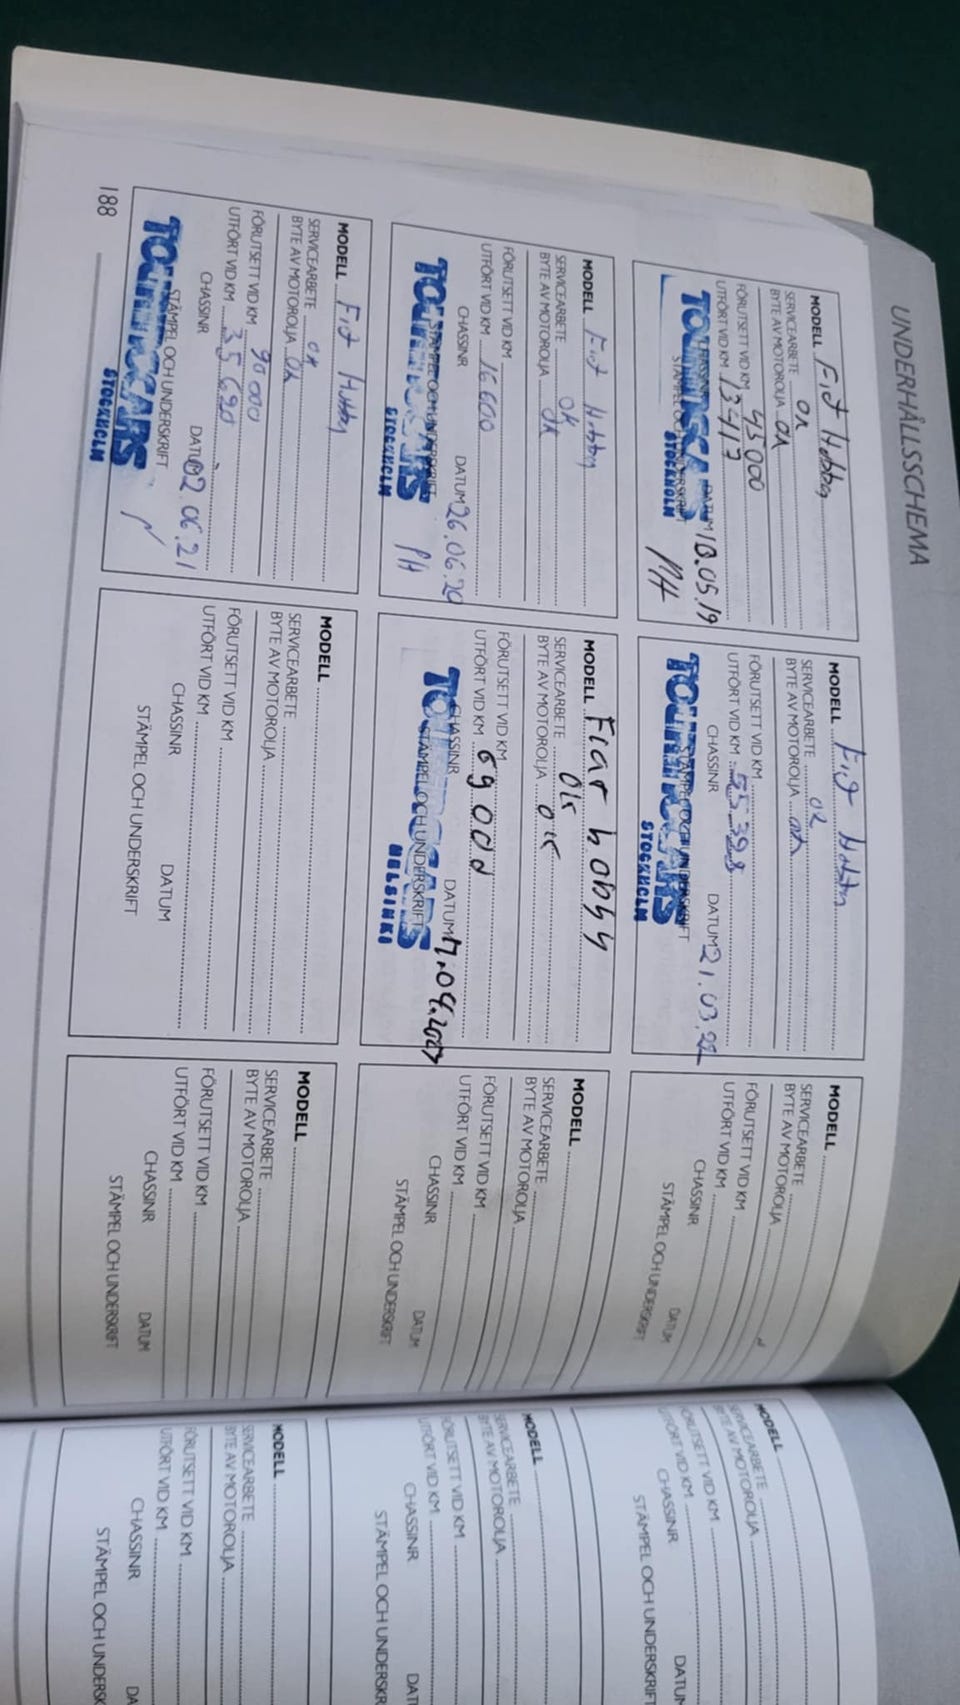 UNDERHÅLLSSCHEMA
MODELL Fiat Hobby
SERVICEARBETE OK
BYTE AV MOTOROLJA OK
FÖRUTSETT VID KM 45 000
UTFÖRT VID KM 13417
CHASSINR DATUM 13.05.19
STÄMPEL OCH UNDERSKRIFT
TOURINGCARS
STOCKHOLM
MODELL Fiat Hobby
SERVICEARBETE OK
BYTE AV MOTOROLJA OK
FÖRUTSETT VID KM
UTFÖRT VID KM 16600
CHASSINR DATUM 26.06.20
STÄMPEL OCH UNDERSKRIFT
TOURINGCARS
STOCKHOLM
MODELL Fiat Hobby
SERVICEARBETE OK
BYTE AV MOTOROLJA OK
FÖRUTSETT VID KM 90 000
UTFÖRT VID KM 35 690
CHASSINR DATUM 02.06.21
STÄMPEL OCH UNDERSKRIFT
TOURINGCARS
STOCKHOLM
188
MODELL Fiat Hobby
SERVICEARBETE OK
BYTE AV MOTOROLJA OK
FÖRUTSETT VID KM
UTFÖRT VID KM 55 398
CHASSINR DATUM 21.03.22
STÄMPEL OCH UNDERSKRIFT
TOURINGCARS
STOCKHOLM
MODELL Fiat hobby
SERVICEARBETE Ok
BYTE AV MOTOROLJA ok
FÖRUTSETT VID KM
UTFÖRT VID KM 69000
CHASSINR DATUM
STÄMPEL OCH UNDERSKRIFT
TOURINGCARS
HELSINKI
MODELL
SERVICEARBETE
BYTE AV MOTOROLJA
FÖRUTSETT VID KM
UTFÖRT VID KM
CHASSINR DATUM
STÄMPEL OCH UNDERSKRIFT
MODELL
SERVICEARBETE
BYTE AV MOTOROLJA
FÖRUTSETT VID KM
UTFÖRT VID KM
CHASSINR DATUM
STÄMPEL OCH UNDERSKRIFT
MODELL
SERVICEARBETE
BYTE AV MOTOROLJA
FÖRUTSETT VID KM
UTFÖRT VID KM
CHASSINR DATUM
STÄMPEL OCH UNDERSKRIFT
MODELL
SERVICEARBETE
BYTE AV MOTOROLJA
FÖRUTSETT VID KM
UTFÖRT VID KM
CHASSINR DATUM
STÄMPEL OCH UNDERSKRIFT
MODELL
SERVICEARBETE
BYTE AV MOTOROLJA
FÖRUTSETT VID KM
UTFÖRT VID KM
CHASSINR DATUM
STÄMPEL OCH UNDERSKRIFT
MODELL
SERVICEARBETE
BYTE AV MOTOROLJA
FÖRUTSETT VID KM
UTFÖRT VID KM
CHASSINR DAT
STÄMPEL OCH UNDERSKR
MODELL
SERVICEARBETE
BYTE AV MOTOROLJA
FÖRUTSETT VID KM
UTFÖRT VID KM
CHASSINR DA
STÄMPEL OCH UNDERS